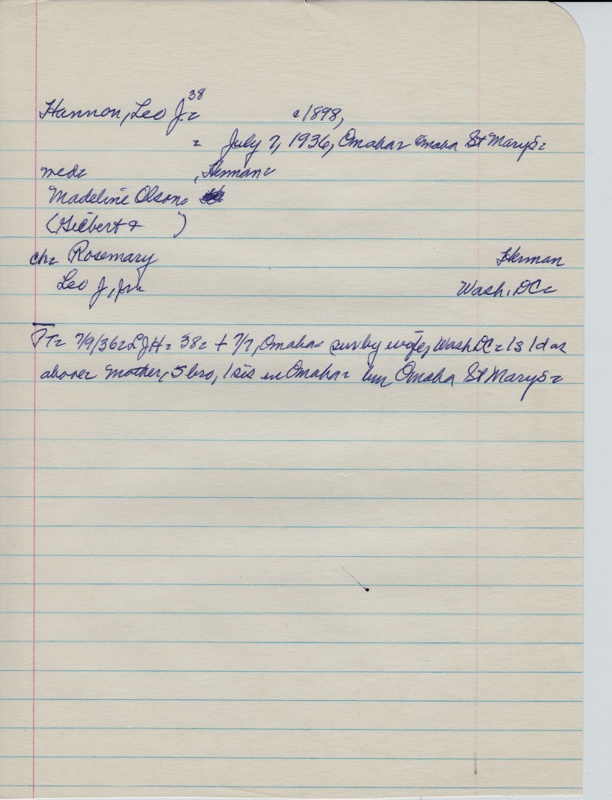 Hannon, Leo J= 38 c1898,
= July 7, 1936, Omaha= Omaha St Mary's=
med= , Herman=
Madeline Olson=
(Gilbert + )
ch= Rosemary Herman
Leo J, Jr= Wash, DC=
TT= 7/9/36=LJH= 38= + 7/7, Omaha= surv by wife, Wash DC= 1s 1d as
above= mother, 5 bro, 1 sis in Omaha= bur Omaha St Mary's=